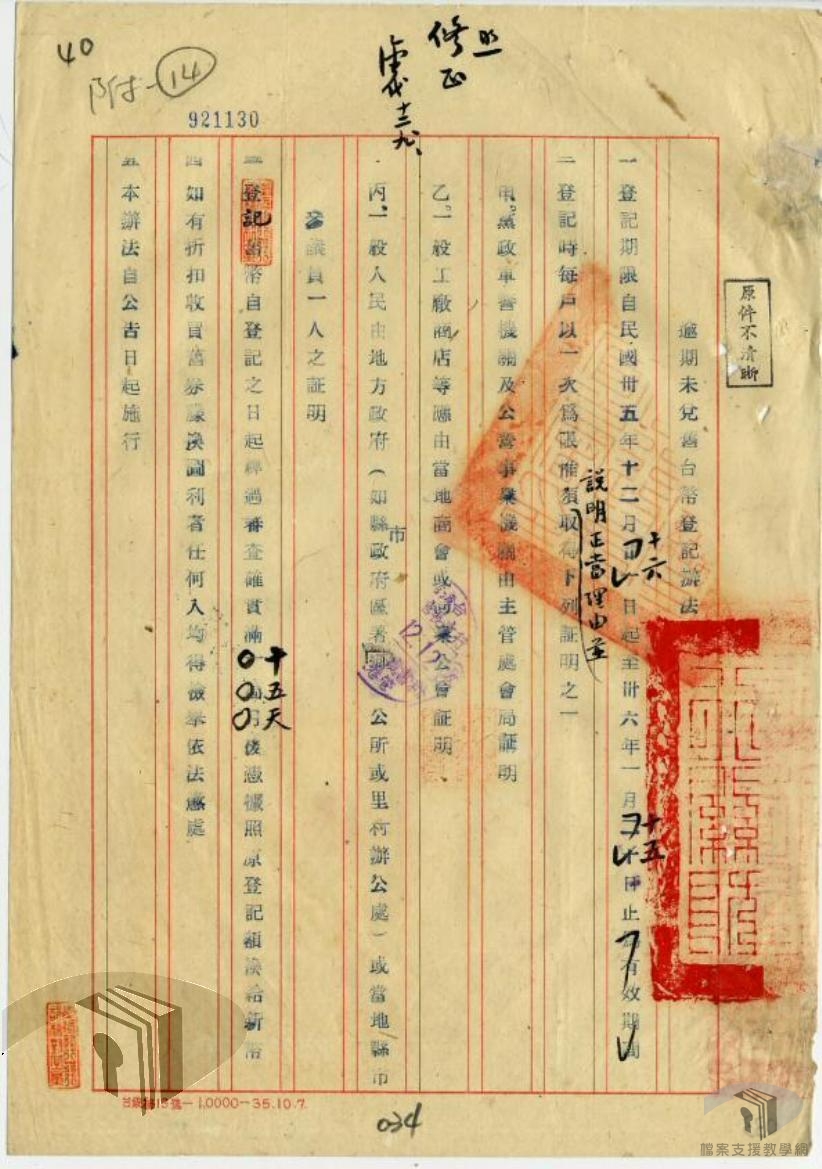 40
附一 14
921130
照
修正
十二、九、
原件不清晰
逾期未兌舊台幣登記辦法
一 登記期限自民國卅五年十二月十六日起至卅六年一月十五日止為有效期間
二 登記時每戶以一次為限惟須說明正當理由並取得下列証明之一
甲。黨政軍各機關及公營事業機關由主管處會局証明
乙。一般工廠商店等應由當地商會或同業公會証明
丙、一般人民由地方政府(如縣市政府區署 公所或里村辦公處)或當地縣市
參議員一人之証明
三 登記舊幣自登記之日起經過審查確實滿十五天後憑據照原登記額換給新幣
四 如有折扣收買舊券朦換圖利者任何人均得檢舉依法懲處
五 本辦法自公告日起施行
15 —1.0000—35.10.7.
034
檔案支援教學網